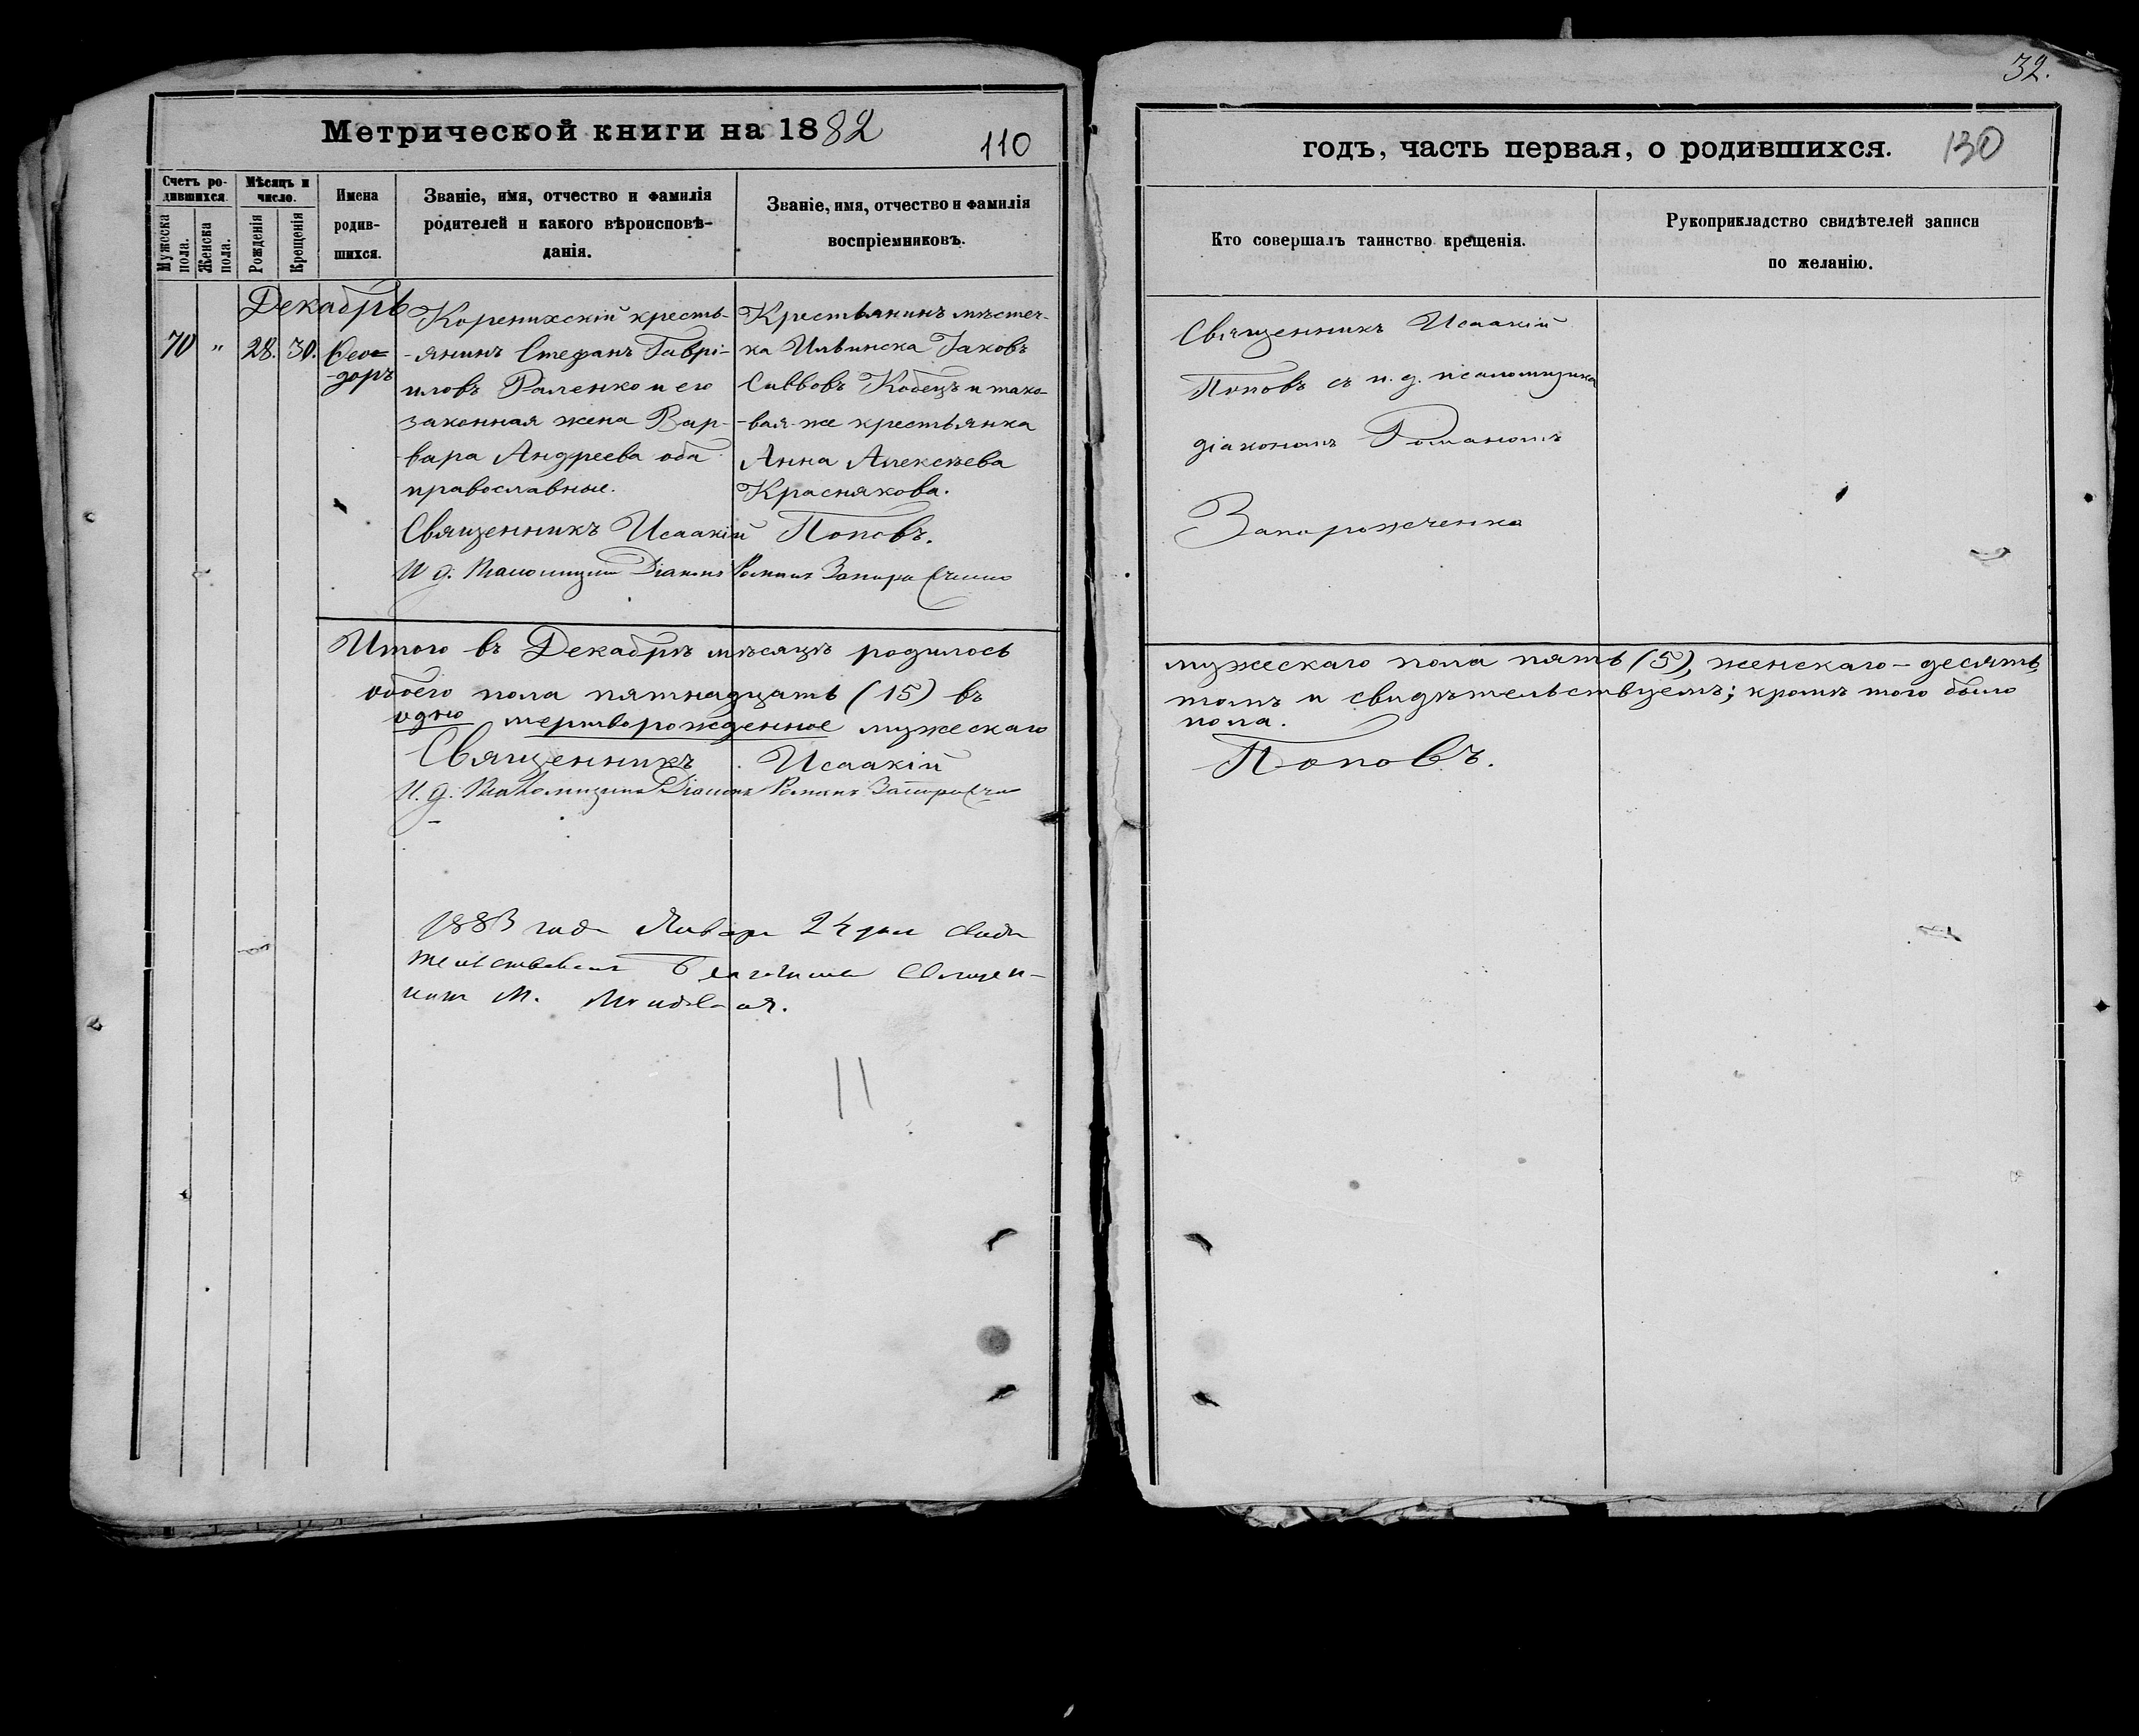 32.
Метрической книги на 1882
110
годъ, часть первая, о родившихся.
130
Счетъ ро-
дившихся.
Мужеска
пола.
Женска
пола.
Мѣсяцъ и
число.
Рожденія
Крещенія
Имена
родив-
шихся.
Званіе, имя, отчество и фамилія
родителей и какого вѣроисповѣ-
данія.
Званіе, имя, отчество и фамилія
воспріемниковъ.
Кто совершалъ таинство крещенія.
Рукоприкладство свидѣтелей записи
по желанію.
Декабрь
70 " 28. 30.
Ѳео=
доръ
Коренихскій кресть-
-янинъ Стефанъ Гаврі-
иловъ Раленко и его
законная жена Вар-
вара Андреева оба
православные.
Крестьянинъ мѣстеч-
ка Ильинска Іаковъ
Саввовъ Кобецъ и тако-
-вая-же крестьянка
Анна Алексѣева
Краснякова.
Священникъ Исаакій Поповъ.
И. д. Псаломщика Діаконъ Романъ
Священникъ Исаакій
Поповъ съ и. д. псаломщика
діакономъ Романомъ
Запорожченко
Итого въ Декабрѣ мѣсяцѣ родилось
обоего пола пятнадцать (15) въ
одно мертворожденное мужескаго
Священникъ Исаакій
И. д. Псаломщика Діаконъ Романъ
мужескаго пола пять (5), женскаго - десять
томъ и свидѣтельствуемъ; кромѣ того было
пола.
Поповъ.
1883 года Января 24 дня свидѣ
тельствовалъ Благочинный Священ-
никъ М.
11